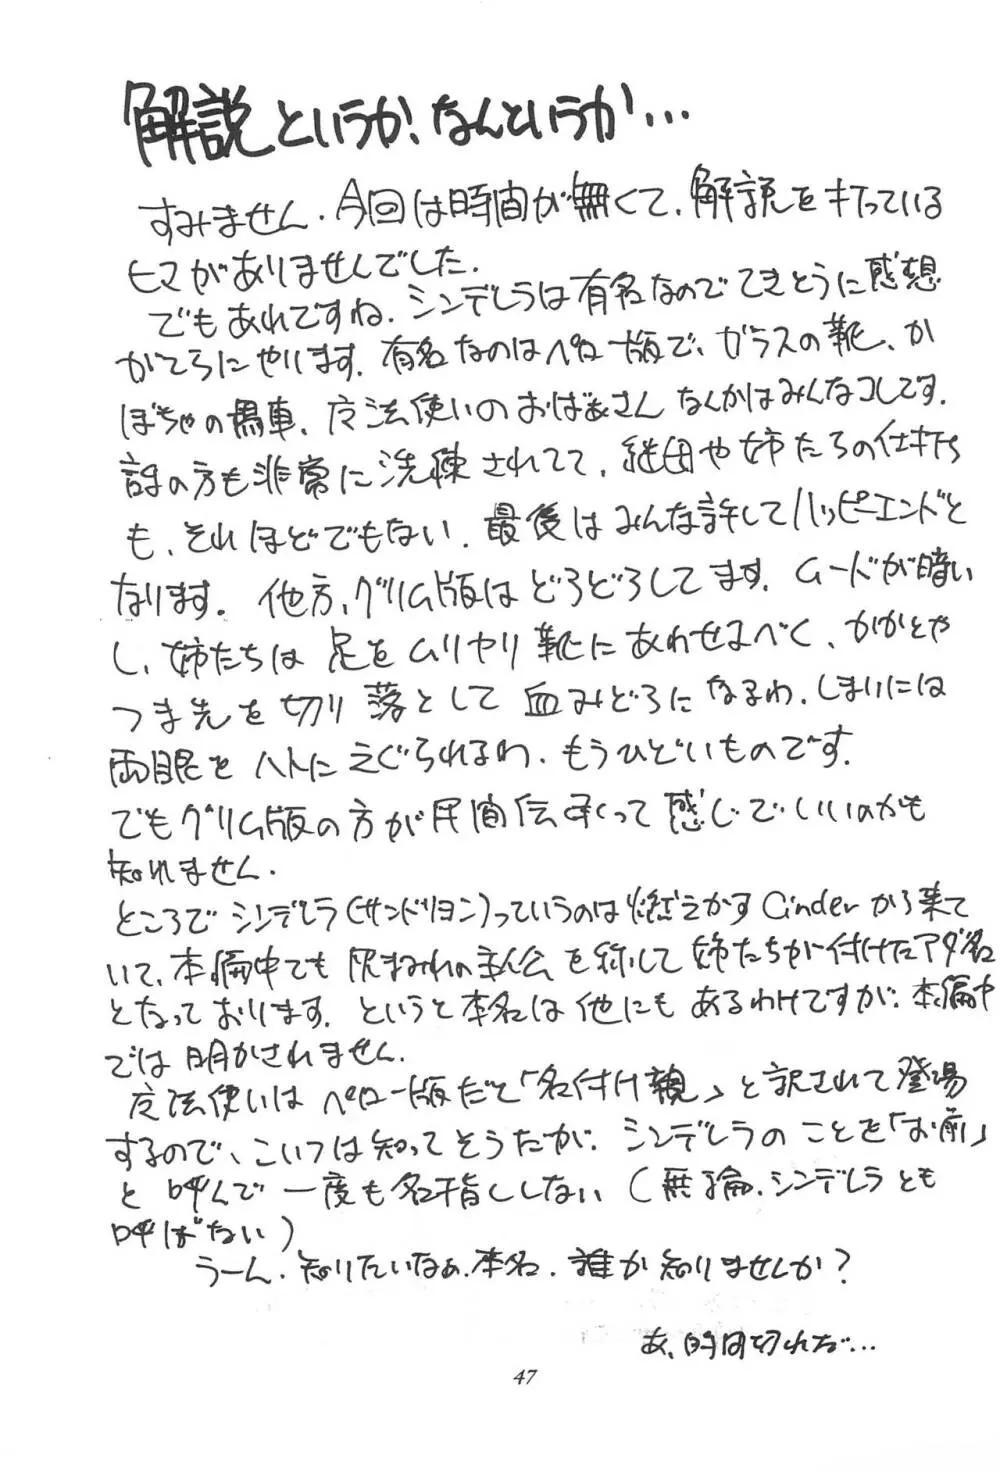 解説というか、なんというか…
すみません.今回は時間が無くて.解説を打っている
ヒマがありませんでした.
でもあれですね.シンデレラは有名なのでてきとうに感想
がてらにやります.有名なのはペロー版で、ガラスの靴、か
ぼちゃの馬車、魔法使いのおばあさんなんかはみんなコレです.
話の方も非常に洗練されてて.継母や姉たちの仕打ち
も、それほどでもない.最後はみんな許してハッピーエンドと
なります.他方、グリム版はどろどろしてます.ムードが暗い
し、姉たちは足をムリヤリ靴にあわせるべく、かかとや
つま先を切り落として血みどろになるわ.しまいには
両眼をハトにえぐられるわ.もうひどいものです.
でもグリム版の方が民間伝承って感じでいいのかも
知れません.
ところでシンデレラ(サンドリヨン)っていうのは燃えかすCinderから来て
いて、本編中でも灰まみれの主人公を称して姉たちが付けたアダ名
となっております.というと本名は他にもあるわけですが.本編中
では明かされません.
魔法使いはペロー版だと「名付け親」と訳されて登場
するので、こいつは知ってそうだが.シンデレラのことを「お前」
と呼んで一度も名指ししない(無論.シンデレラとも
呼ばない)
うーん.知りたいなぁ.本名.誰か知りませんか?
あ、時間切れだ…
47